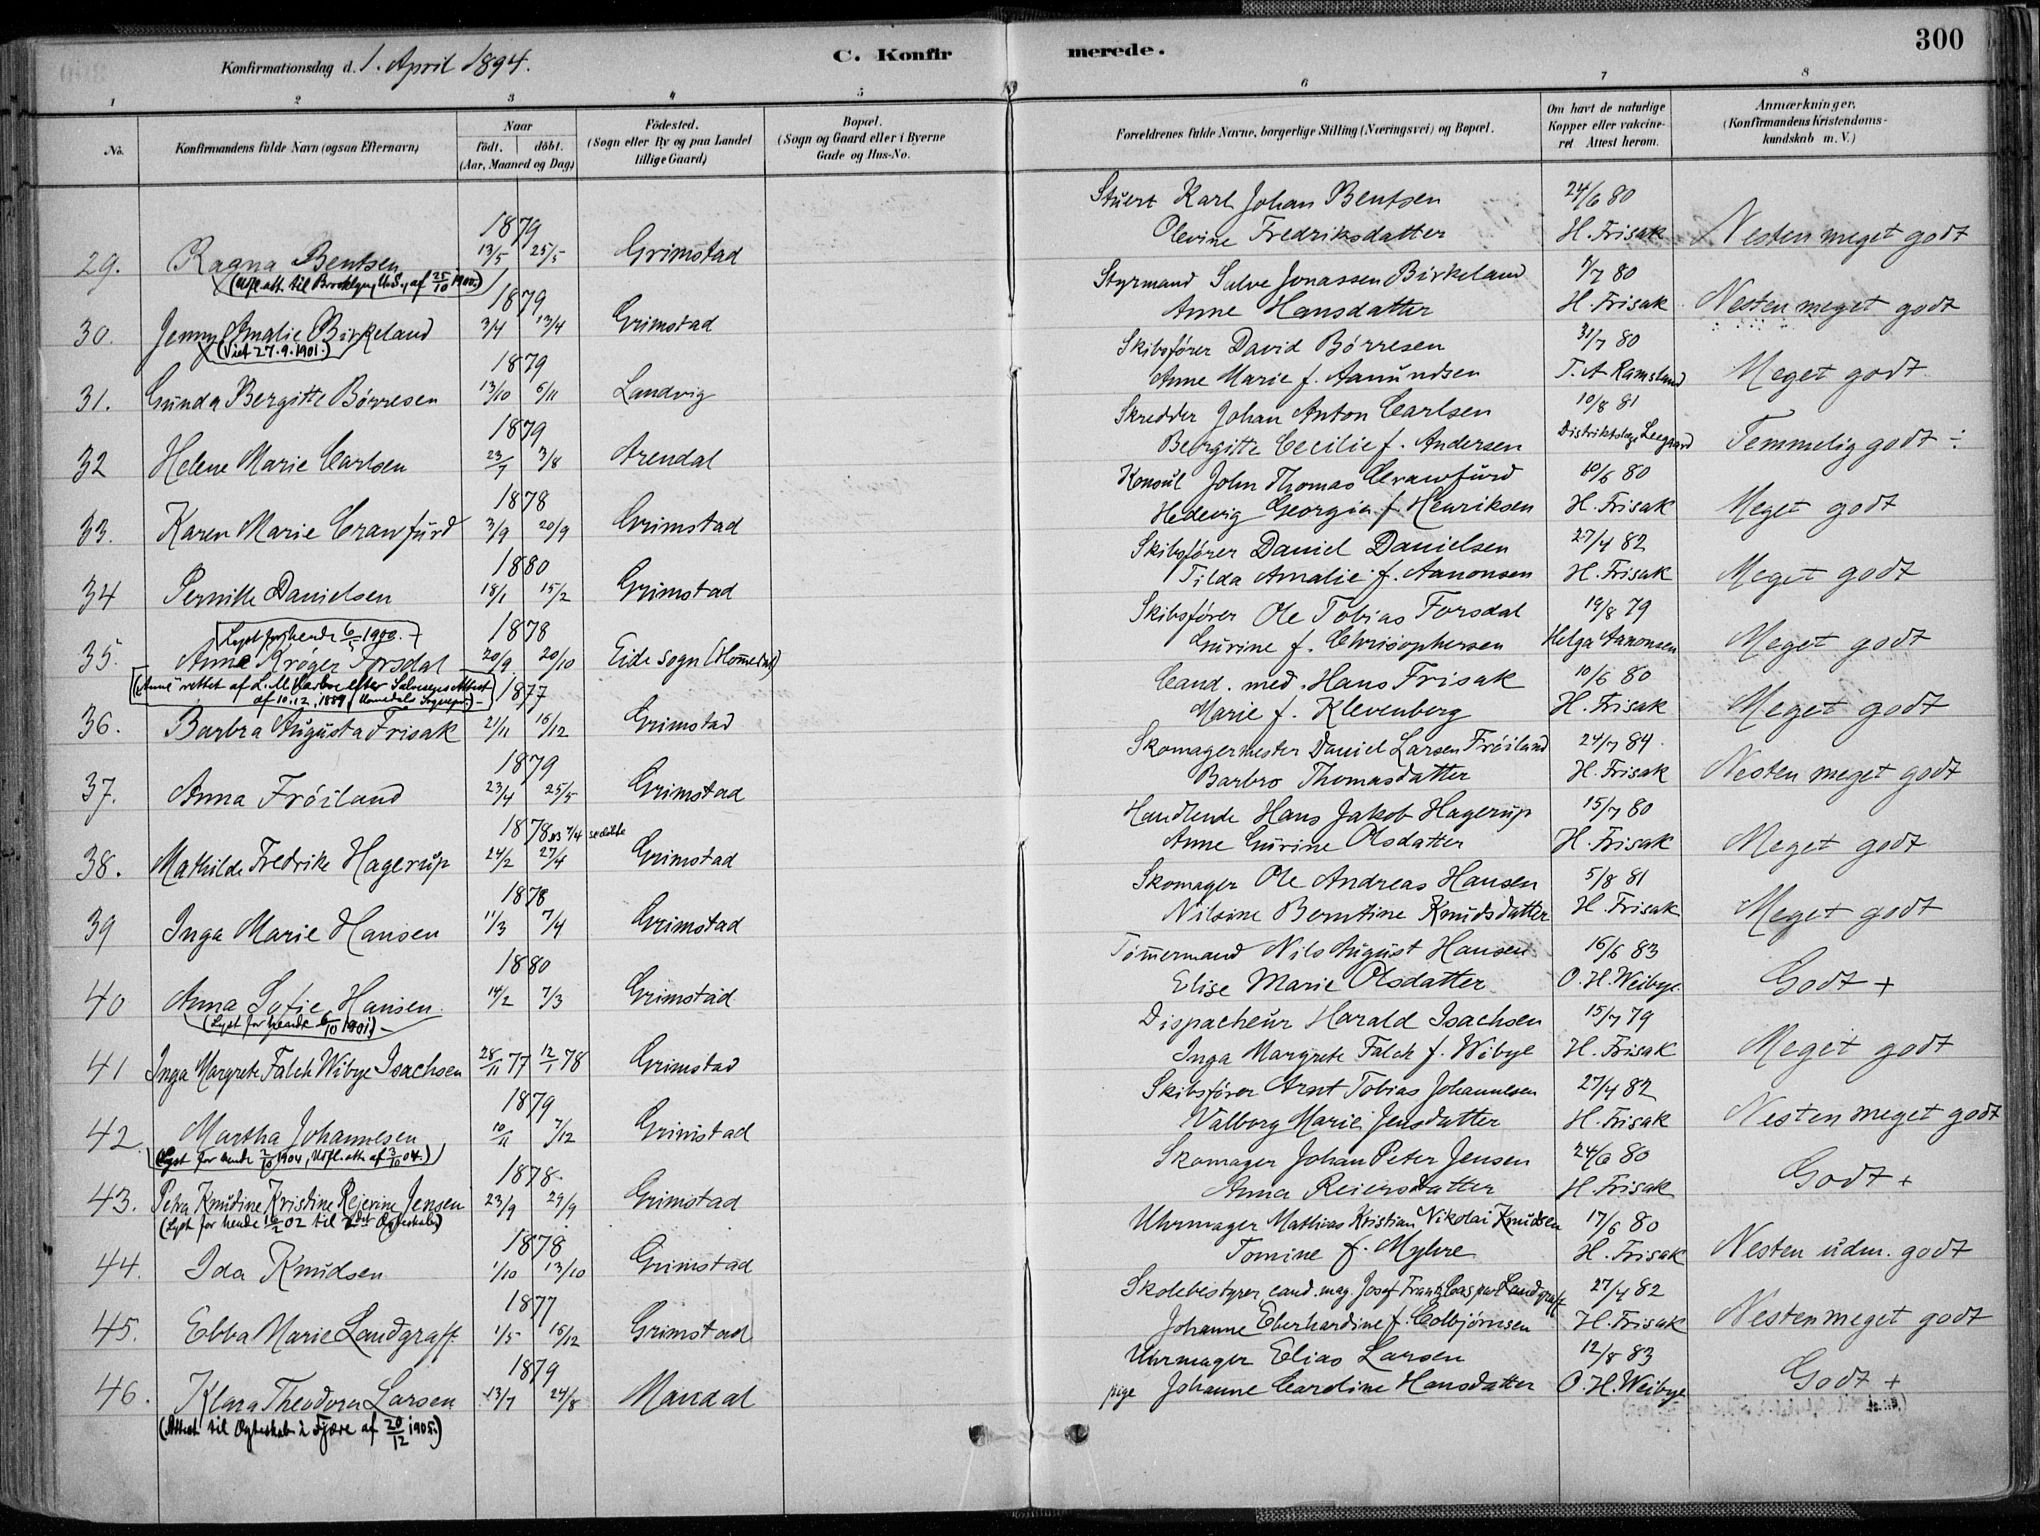 300
Konfirmationsdag d. 1. April 1894.
C. Konfirmerede.
1 2 3 4 5 6 7 8
No.
Konfirmandens fulde Navn (ogsaa Efternavn)
Naar
födt. döbt.
(Aar, Maaned og Dag)
Födested.
(Sogn eller By og paa Landet
tillige Gaard)
Bopæl.
(Sogn og Gaard eller i Byerne
Gade og Hus-No.
Forældrenes fulde Navne, borgerlige Stilling (Næringsvei) og Bopæl.
Om havt de naturlige
Kopper eller vakcine-
ret Attest herom.
Anmærkninger.
(Konfirmandens Kristendoms-
kundskab m. V.)
1879 Stuert Karl Johan Bentsen 24/6 80
29. Ragna Bentsen 13/5 25/5 Grimstad Olevine Fredriksdatter H. Frisak Nesten meget godt
(Udfl.att. til Brooklyn, U.S., af 25/10 1900.)
1879 Styrmand Salve Jonassen Birkeland 1/7 80
30. Jenny Amalie Birkeland 3/4 13/4 Grimstad Anne Hansdatter H. Frisak Nesten meget godt
(Viet 27.9.1901.)
1879 Skibsfører David Børresen 31/7 80
31. Gunda Bergitte Børresen 13/10 6/11 Landvig Anne Marie f. Aamundsen T. A Ramsland Meget godt
1879 Skredder Johan Anton Carlsen 10/8 81
32 Helene Marie Carlsen 23/7 3/8 Arendal Bergitte Cecilie f. Andersen Distriktslæge Leegaard Temmelig godt ÷
1878 Konsul John Thomas Crawfurd 10/6 80
33. Karen Marie Crawfurd 3/9 20/9 Grimstad Hedevig Georgia f. Henriksen H. Frisak Meget godt
1880 Skibsfører Daniel Danielsen 27/4 82
34 Pernille Danielsen 18/1 15/2 Grimstad Tilda Amalie f. Aanonsen H. Frisak Meget godt
Lyst for hende 6/5 1900.
1878 Skibsfører Ole Tobias Forsdal 19/8 79
35. Anne Krøger Forsdal 20/9 20/10 Eide sogn (Homedal) Gurine f. Chrisophersen Helga Aanonsen Meget godt
("Anne" rettet af L. M. efter Attest
af 10.12.1889 (Homedals Sognepr.)
1877 Cand. med. Hans Frisak 10/6 80
36. Barbra Augusta Frisak 21/11 16/12 Grimstad Marie f. Klevenberg H. Frisak Meget godt
1879 Skomagermester Daniel Larsen Frøiland 24/7 84
37. Anna Frøiland 23/4 25/5 Grimstad Barbro Thomasdatter H. Frisak Nesten meget godt
1878 Handlende Hans Jakob Hagerup 15/7 80
38. Mathilde Fredrike Hagerup 24/2 27/4 Grimstad Anne Gurine Olsdatter H. Frisak Meget godt
1878 Skomager Ole Andreas Hansen 5/8 81
39 Inga Marie Hansen 11/3 7/4 Grimstad Nilsine Berntine Knudsdatter H. Frisak Meget godt
1880 Tømmermand Nils August Hansen 16/6 83
40 Anna Sofie Hansen. 14/2 7/3 Grimstad Elise Marie Olsdatter O. H. Weibye Godt +
(Lyst for hende 6/10 1901)
Dispacheur Harald Isachsen 15/7 79
41 Inga Margrete Falch Wibye Isachsen 28/11 77 12/1 78 Grimstad Inga Margrete Falch f. Wibye H. Frisak Meget godt
1879 Skibsfører Arnt Tobias Johannesen 27/4 82
42. Martha Johannesen 10/11 7/12 Grimstad Valborg Marie Jensdatter H. Frisak Nesten meget godt
(Lyst for hende 2/10 1904, Udfl.att. af 3/10 04.)
1878 Skomager Johan Peter Jensen 24/6 80
43. Petra Knudine Kristine Rejerine Jensen 23/9 29/9 Grimstad Anna Reiersdatter H. Frisak Godt +
(Lyst for hende 16/2 02 til 2det Ægteskab)
1878 Uhrmager Mathias Kristian Nikolai Knudsen 17/6 80
44. Ida Knudsen 1/10 13/10 Grimstad Tomine f. Myhre H. Frisak Nesten udm. godt
1877 Skolebestyrer, cand. mag. Josef Frantz Caspar Landgraff 27/4 82
45. Ebba Marie Landgraff 1/5 16/12 Grimstad Johanne Eberhardine f. Colbjørnsen H. Frisak Nesten meget godt
1879 Uhrmager Elias Larsen 12/8 83
46. Klara Theodora Larsen 13/7 24/8 Mandal pige Johanne Caroline Hansdatter O. H. Weibye Godt +
(Attest til Ægteskab i Fjære af 20/12 1905.)